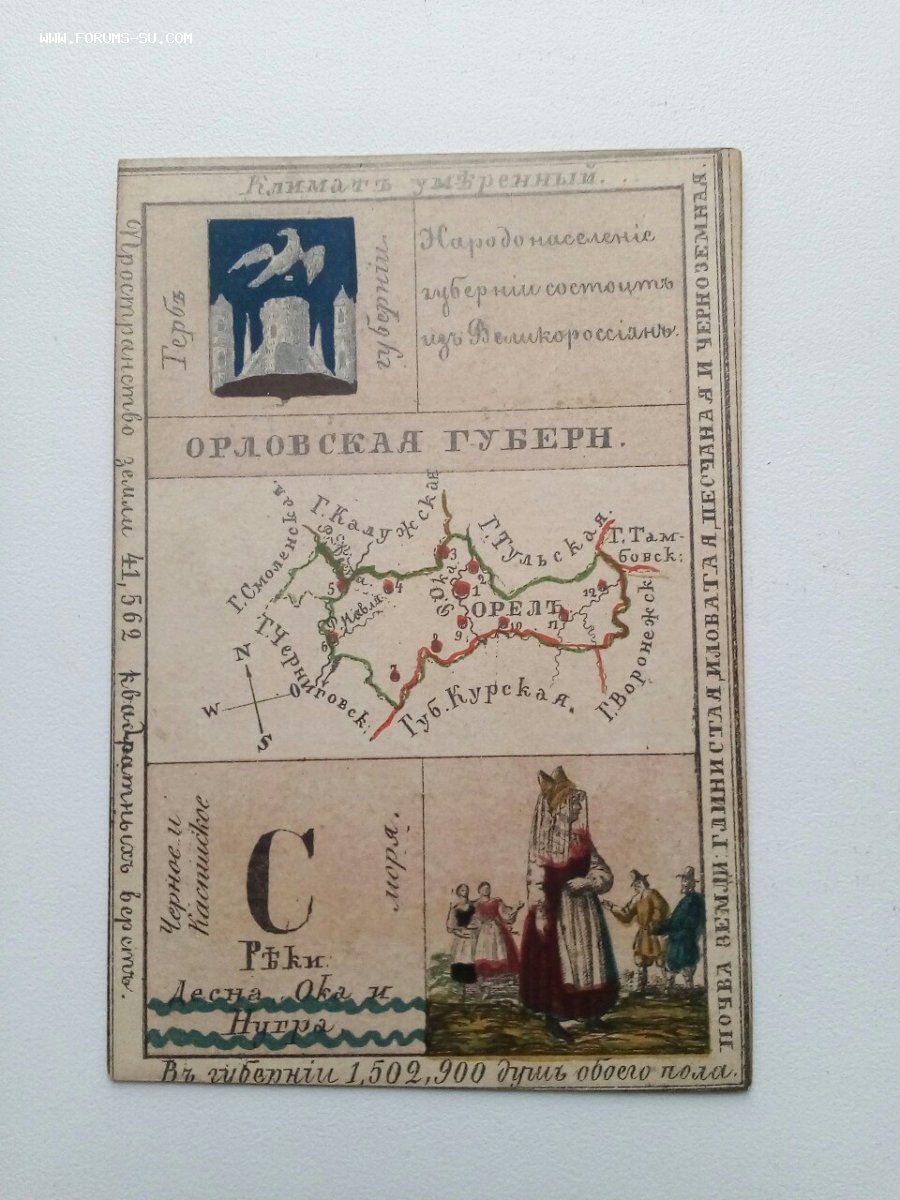 WWW.FORUMS-SU.COM
Климатъ умѣренный...
Пространство земли 41,562 квадратныхъ верстъ.
Гербъ
губерніи
Народонаселеніе
губерніи состоитъ
изъ Великороссіянъ.
ОРЛОВСКАЯ ГУБЕРН.
Г. Смоленская.
Г. Калужская
Г. Тульская.
Г. Там-
бовск:
Г. Воронежск:
Губ. Курская.
Г. Черниговск:
Р. Ока
Навля
ОРЕЛЪ
1
2
3
4
5
6
7
8
9
10
11
12
N
W
O
S
Черное и
Каспійское
моря.
С
Рѣки
Десна, Ока и
Нугра.
ПОЧВА ЗЕМЛИ: ГЛИНИСТАЯ, ИЛОВАТАЯ, ПЕСЧАНАЯ И ЧЕРНОЗЕМНАЯ.
Въ губерніи 1,502,900 душъ обоего пола.